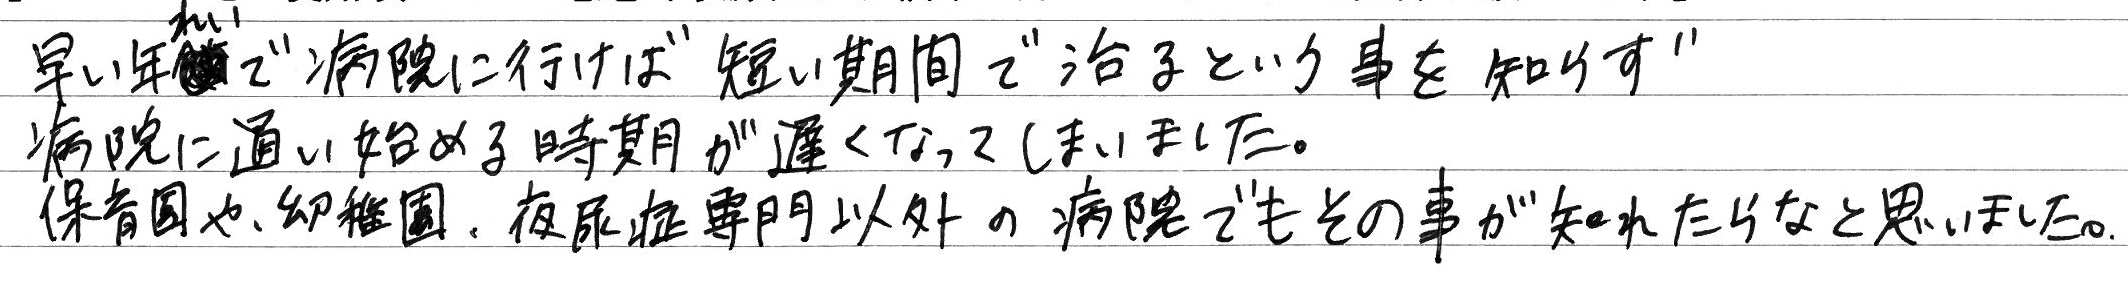 早い年れいで病院に行けば短い期間で治るという事を知らず
病院に通い始める時期が遅くなってしまいました。
保育園や、幼稚園、夜尿症専門以外の病院でもその事が知れたらなと思いました。